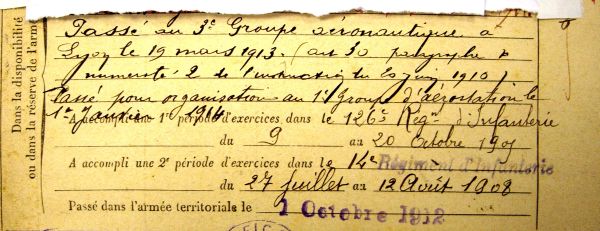 Dans la disponibilité
ou dans la réserve de l'armée
Passé au 3e Groupe aéronautique à
Lyon le 19 mars 1913. (art 30 paragraphe
numeroté 2 de l'instruction du 20 juin 1910)
Passé pour organisation au 1er Groupe d'aérostation le
1er janvier 1914
A accompli une 1e période d'exercices dans le 126e Régt d'Infanterie
du 9 au 20 Octobre 190
A accompli une 2e période d'exercices dans le 14e Régiment d'Infanterie
du 27 juillet au 12 Août 1908
Passé dans l'armée territoriale le 1 Octobre 1912